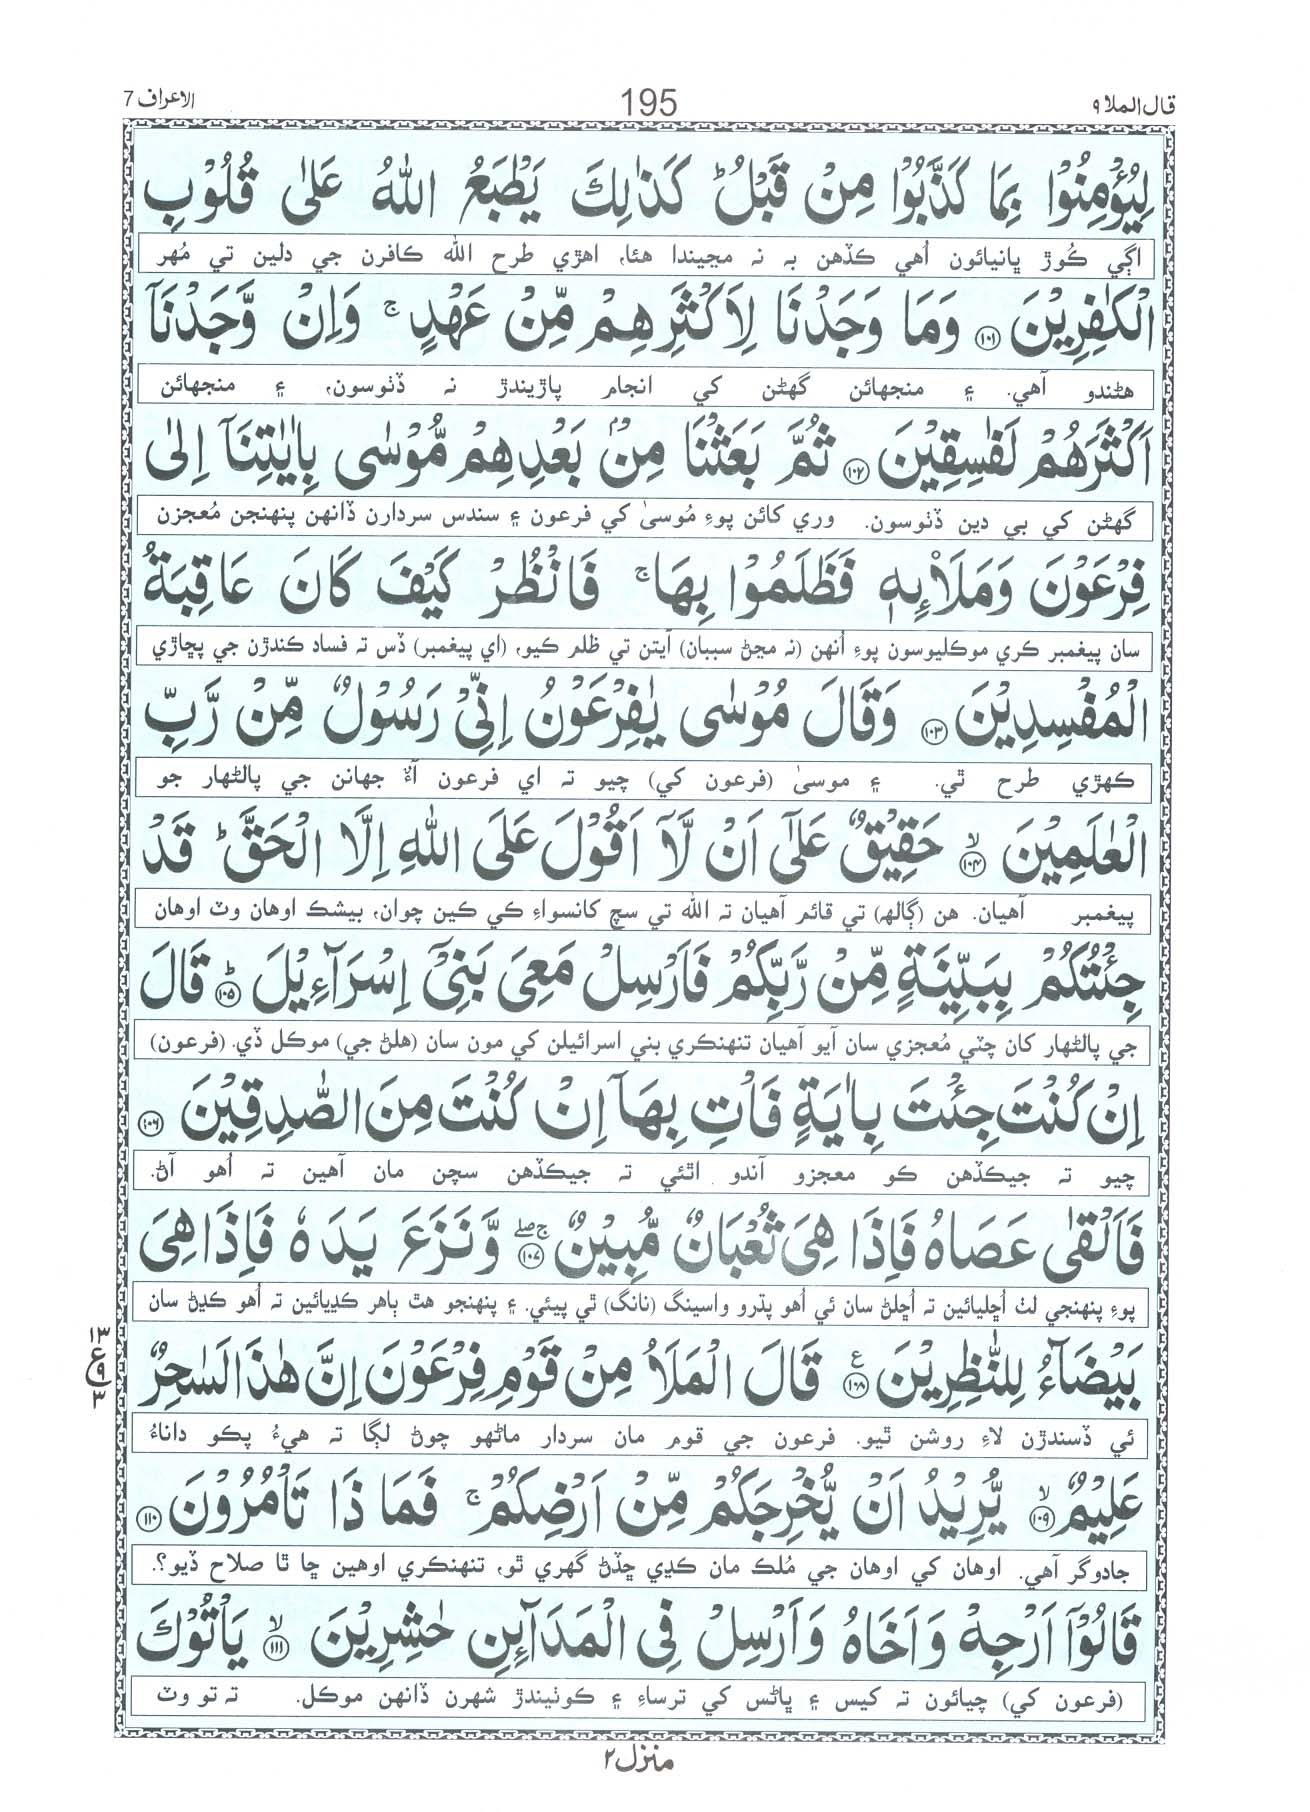 قال الملا ٩ 195 الاعراف 7
لِيُؤْمِنُوْا بِمَا كَذَّبُوْا مِنْ قَبْلُ ؕ كَذٰلِكَ يَطْبَعُ اللّٰهُ عَلٰى قُلُوْبِ
اڳي ڪُوڙ ڀانيائون اُهي ڪڏهن به نه مڃيندا هئا، اهڙي طرح الله ڪافرن جي دلين تي مُهر
الْكٰفِرِيْنَ ﴿۱۰۱﴾ وَمَا وَجَدْنَا لِاَكْثَرِهِمْ مِّنْ عَهْدٍ ۚ وَاِنْ وَّجَدْنَاۤ
هڻندو آهي. ۽ منجهائن گهڻن کي انجام پاڙيندڙ نه ڏٺوسون، ۽ منجهائن
اَكْثَرَهُمْ لَفٰسِقِيْنَ ﴿۱۰۲﴾ ثُمَّ بَعَثْنَا مِنْۢ بَعْدِهِمْ مُّوْسٰى بِاٰيٰتِنَاۤ اِلٰى
گهڻن کي بي دين ڏٺوسون. وري کائن پوءِ مُوسىٰ کي فرعون ۽ سندس سردارن ڏانهن پنهنجن مُعجزن
فِرْعَوْنَ وَمَلَا۟ئِهٖ فَظَلَمُوْا بِهَا ۚ فَانْظُرْ كَيْفَ كَانَ عَاقِبَةُ
سان پيغمبر ڪري موڪليوسون پوءِ اُنهن (نه مڃڻ سببان) آيتن تي ظلم ڪيو، (اي پيغمبر) ڏس ته فساد ڪندڙن جي پڇاڙي
الْمُفْسِدِيْنَ ﴿۱۰۳﴾ وَقَالَ مُوْسٰى يٰفِرْعَوْنُ اِنِّيْ رَسُوْلٌ مِّنْ رَّبِّ
ڪهڙي طرح ٿي. ۽ موسىٰ (فرعون کي) چيو ته اي فرعون آءٌ جهانن جي پالڻهار جو
الْعٰلَمِيْنَ ﴿۱۰۴﴾ۙ حَقِيْقٌ عَلٰۤى اَنْ لَّاۤ اَقُوْلَ عَلَى اللّٰهِ اِلَّا الْحَقَّ ؕ قَدْ
پيغمبر آهيان. هن (ڳالهه) تي قائم آهيان ته الله تي سچ کانسواءِ ڪي ڪين چوان، بيشڪ اوهان وٽ اوهان
جِئْتُكُمْ بِبَيِّنَةٍ مِّنْ رَّبِّكُمْ فَاَرْسِلْ مَعِيَ بَنِيْۤ اِسْرَآءِيْلَ ﴿۱۰۵﴾ؕ قَالَ
جي پالڻهار کان چٽي مُعجزي سان آيو آهيان تنهنڪري بني اسرائيلن کي مون سان (هلڻ جي) موڪل ڏي. (فرعون)
اِنْ كُنْتَ جِئْتَ بِاٰيَةٍ فَاْتِ بِهَاۤ اِنْ كُنْتَ مِنَ الصّٰدِقِيْنَ ﴿۱۰۶﴾
چيو ته جيڪڏهن ڪو معجزو آندو اٿئي ته جيڪڏهن سچن مان آهين ته اُهو آڻ.
فَاَلْقٰى عَصَاهُ فَاِذَا هِيَ ثُعْبَانٌ مُّبِيْنٌ ﴿۱۰۷﴾ۚۖ وَّنَزَعَ يَدَهٗ فَاِذَا هِيَ
پوءِ پنهنجي لٺ اُڇليائين ته اُڇلڻ سان ئي اُهو پڌرو واسينگ (نانگ) ٿي پيئي. ۽ پنهنجو هٿ ٻاهر ڪڍيائين ته اُهو ڪڍڻ سان
بَيْضَآءُ لِلنّٰظِرِيْنَ ﴿۱۰۸﴾ع قَالَ الْمَلَاُ مِنْ قَوْمِ فِرْعَوْنَ اِنَّ هٰذَا لَسٰحِرٌ
١٣ ع ٩ ٣
ئي ڏسندڙن لاءِ روشن ٿيو. فرعون جي قوم مان سردار ماڻهو چوڻ لڳا ته هيءُ پڪو داناءُ
عَلِيْمٌ ﴿۱۰۹﴾ۙ يُّرِيْدُ اَنْ يُّخْرِجَكُمْ مِّنْ اَرْضِكُمْ ۚ فَمَا ذَا تَاْمُرُوْنَ ﴿۱۱۰﴾
جادوگر آهي. اوهان کي اوهان جي مُلڪ مان ڪڍي ڇڏڻ گهري ٿو، تنهنڪري اوهين ڇا ٿا صلاح ڏيو؟.
قَالُوْۤا اَرْجِهْ وَاَخَاهُ وَاَرْسِلْ فِي الْمَدَآئِنِ حٰشِرِيْنَ ﴿۱۱۱﴾ۙ يَاْتُوْكَ
(فرعون کي) چيائون ته کيس ۽ ڀاڻس کي ترساءِ ۽ ڪوٺيندڙ شهرن ڏانهن موڪل. ته تو وٽ
منزل ٢